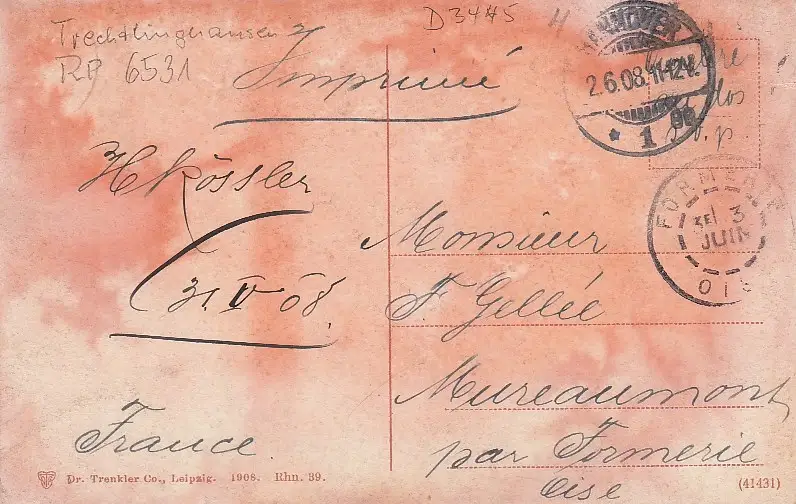 D3445
Trechtlinghausen
RP 6531
Imprimé
HANNOVER
2.6.08. 11-12V.
* 1
Timbre
au dos
s.v.p.
H Kössler
31. V 08.
FORMERIE
3
JUIN
OISE
Monsieur
F. Gellée
Mureaumont
par Formerie
Oise
France.
Dr. Trenkler Co., Leipzig. 1908. Rhn. 39.
(41431)